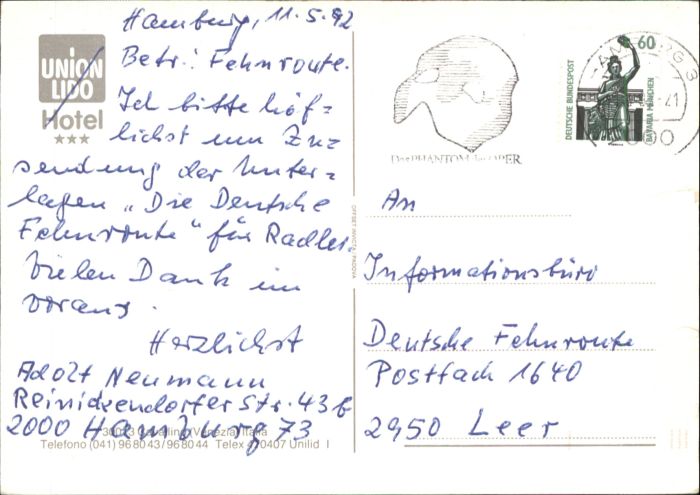 Hamburg, 11.5.92
Betr.: Fehnroute.
Ich bitte höf-
lichst um Zu-
sendung der Unter-
lagen „Die Deutsche
Fehnroute" für Radler.
Vielen Dank im
voraus.
Herzlichst
Adolf Neumann
Reinickendorfer Str. 43b
2000 Hamburg 73
UNION
LIDO
Hotel
★★★
(Venezia) Italia
Telefono (041) 968043/968044 Telex 410407 Unilid I
OFFSET INVICTA PADOVA
Das PHANTOM der OPER
DEUTSCHE BUNDESPOST
60
BAVARIA MÜNCHEN
HAMBURG
2000
An
Informationsbüro
Deutsche Fehnroute
Postfach 1640
2950 Leer